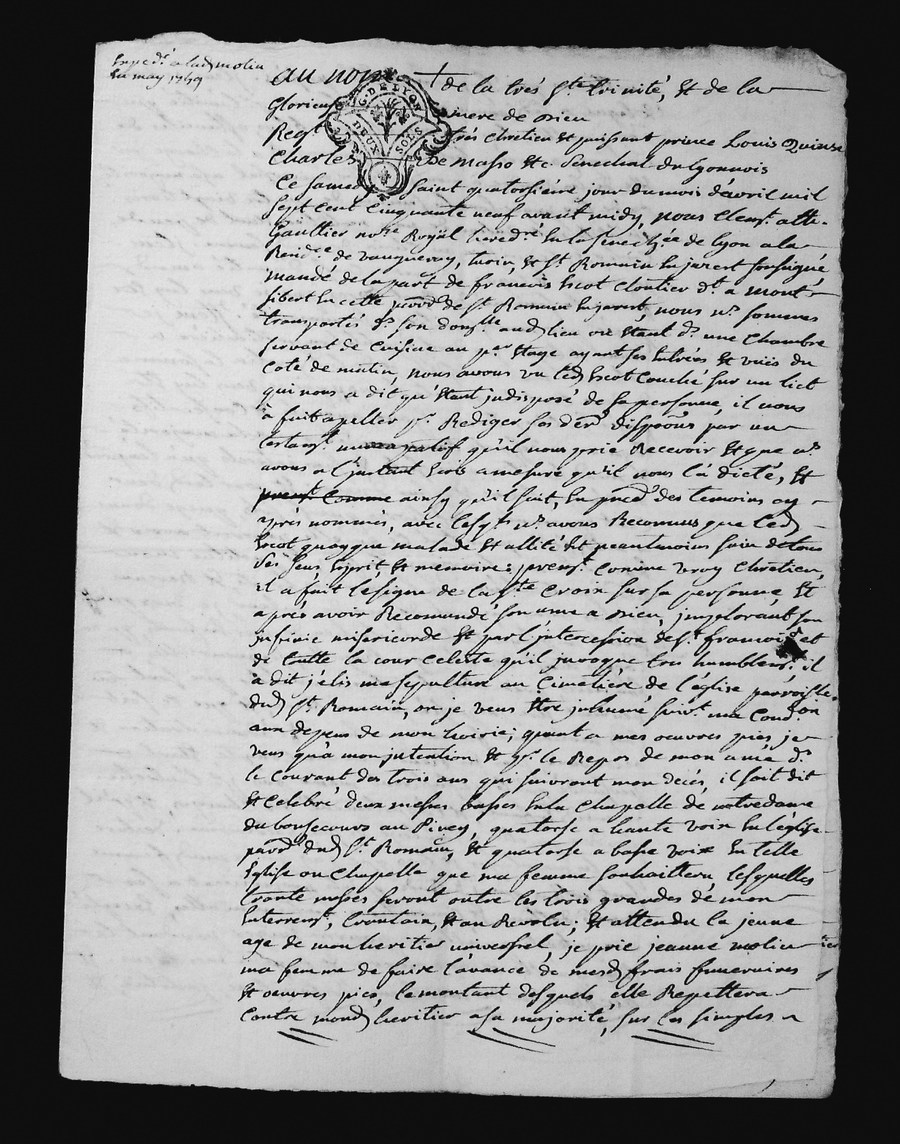 Expéd. a lad. molin
En may 1759
au nom + de la trés Ste trinité, Et de la
Glorieuse mere de Dieu
Regt trés chretien Et puissant prince Louis Quinze
Charles De Masso &c. Senechal du lyonnois
G. DE LYON
DEUX SOLS
Ce Samedy Saint quatorsiéme jour du mois d'avril mil
Sept Cent Cinquante neuf avant midy, nous
Gaultier nore Royal heredre En la Senechée de lyon a la
Rendce de vaugneray, turin, Et St Romain En jarest soussigné
mandé de la part de francois Escot cloutier dt a mont
sibert En cette parrd de St Romain En jarest, nous ns sommes
transportés ds son domlle aud lieu ou Etant ds une chambre
servant de Cuisine au pr Etage ayant ses Entrées Et vuës du
Coté de matin, nous avons vu led Escot Couché sur un lict
qui nous a dit qu'Etant jndisposé de sa personne, il nous
à fait apeller pr Rediger ses der disp͠ons par un
testamt nuncupatif qu'il nous prie Recevoir Et que ns
avons a l'jnstant Ecris a mesure qu'il nous l'à dicté, Et
premt Comme ainsy qu'il suit, En preces des temoins cy
aprés nommés, avec lesqls ns avons Reconnus que led
Escot quoyque malade Et allité Est neantmoins sain de tous
ses sens Esprit Et memoire; premt Comme vray Chretien,
il a fait le signe de la Ste Croix sur sa personne, Et
aprés avoir Recomandé son ame a Dieu, jmplorant son
jnfinie misericorde Et par l'jntercession de St francois et
de toutte la cour Celeste qu'il jnvoque tres humblemt. il
a dit j'élis ma sepulture au Cimetiére de l'église parroissle
dud St Romain, ou je veus Etre jnhumé suivt ma Condon
aux depens de mon hoirie; quant a mes oeuvres pies je
veus qu'à mon jntention Et pr le Repos de mon ame ds
le Courant des trois ans qui suivront mon decés, il soit dit
Et Celebré deux messes basses En la Chapelle de notre dame
du bonsecours au Pivey, quatorse a haute voix En l'église
parrd dud St Romain, Et quatorse a basse voix En telle
Eglise ou Chapelle que ma femme souhaittera lesquelles
trente messes seront outre les trois grandes de mon
Enterremt, trentain, Et au Revolu; Et attendu la jeune
age de mon heritier universel, je prie jeanne molin
ma femme de faire l'avance de mesd frais funeraires
Et oeuvres pies, le montant desquels elle Repettera
Contre mond heritier a sa majorité, sur les simples